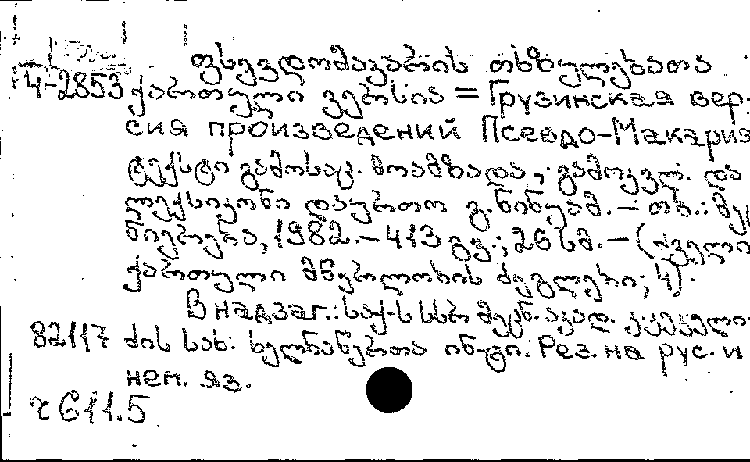 ფსევდომაკარის თხზულებათა
Ч-2853 ქართული ვერსია = Грузинская вер-
сия произведений Псевдо-Макария
ტექსტი გამოსაც. მოამზადა, გამოკვლ. და
ლექსიკონი დაურთო გ. ნინუამ. – თბ.: მეც
ნიერება, 1982. – 413 გვ.; 26 სმ. – (ძველი
ქართული მწერლობის ძეგლები; 4).
В надзаг.: საქ-ს სსრ მეცნ. აკად. კ. კეკელი-
82117 ძის სახ. ხელნაწერთა ინ-ტი. Рез. на рус. и
нем. яз.
611.5